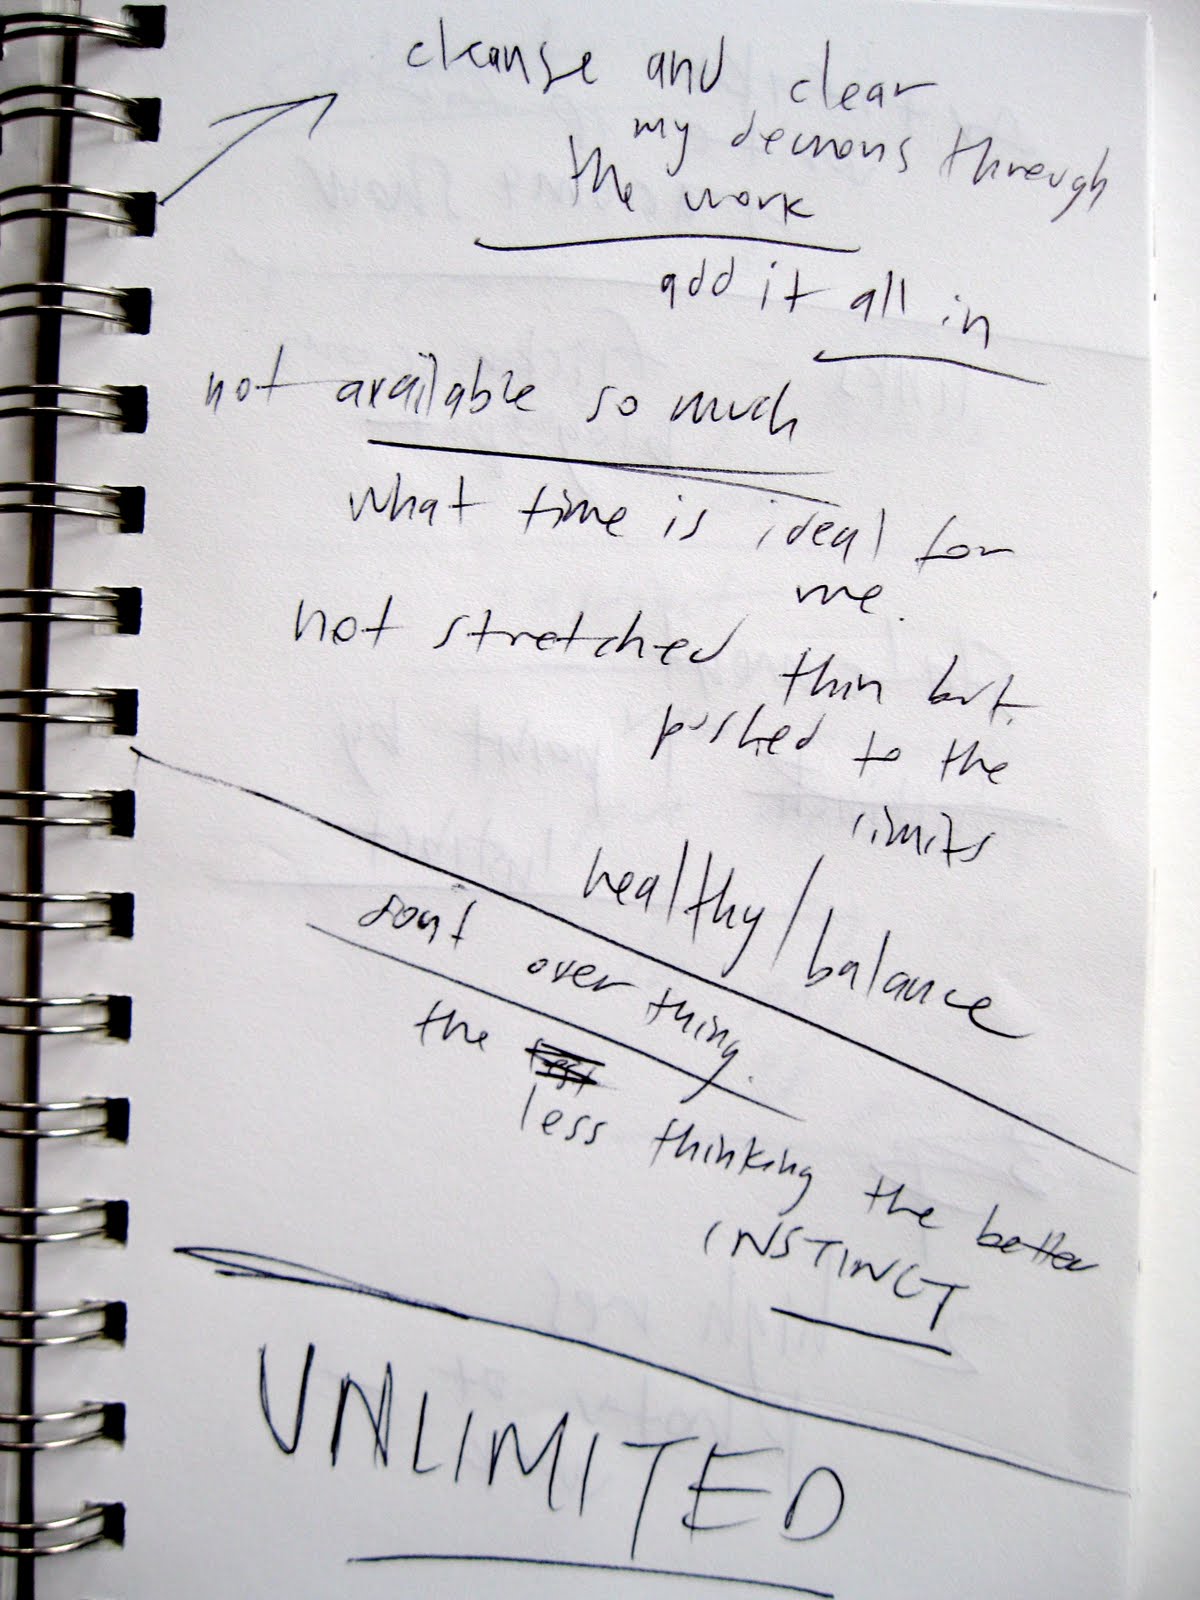 cleanse and clear
my demons through
the work
add it all in
not available so much
what time is ideal for
me.
not stretched
thin but
pushed to the
limits
healthy/balance
dont over thing.
the
less thinking the better
INSTINCT
UNLIMITED